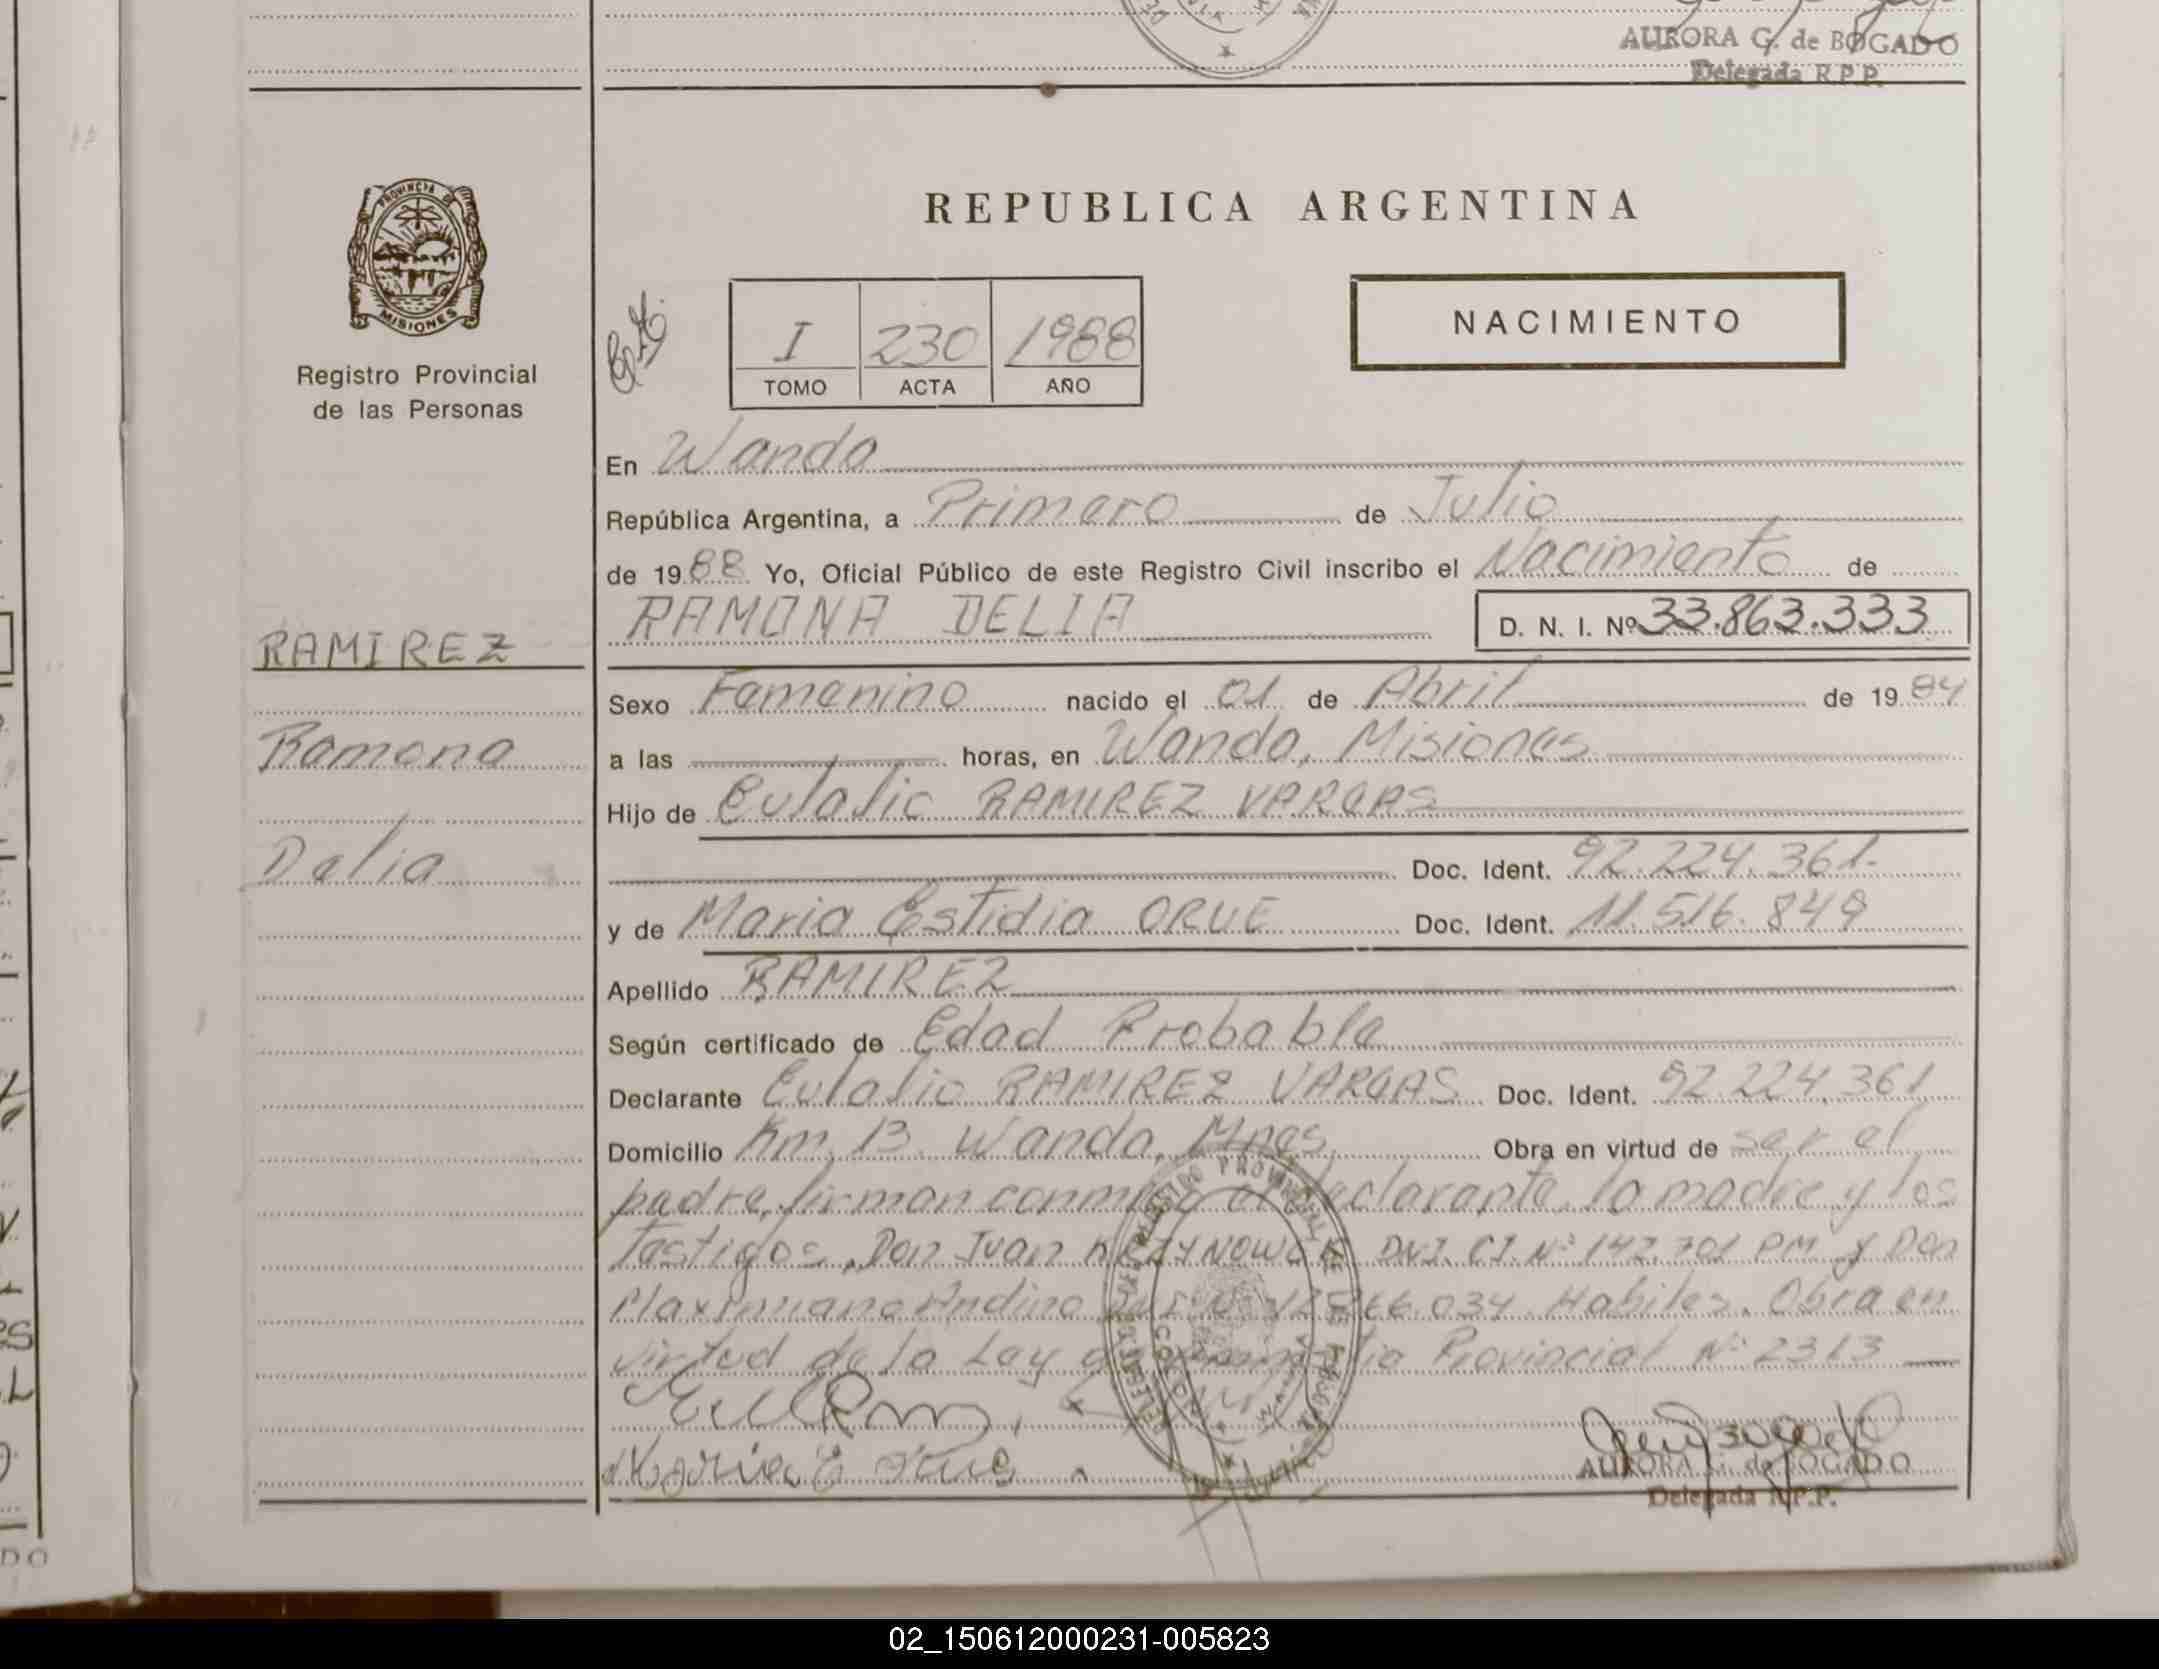 AURORA G. de BOGADO
Delegada R.P.P.
PROVINCIA DE
MISIONES
Registro Provincial
de las Personas
REPUBLICA ARGENTINA
I 230 1988
TOMO ACTA AÑO
NACIMIENTO
En Wanda
República Argentina, a Primero de Julio
de 1988 Yo, Oficial Público de este Registro Civil inscribo el Nacimiento de
RAMONA DELIA D. N. I. Nº 33.863.333
RAMIREZ
Ramona
Delia
Sexo Femenino nacido el 01 de Abril de 1984
a las horas, en Wanda, Misiones
Hijo de Eulalio RAMIREZ VARGAS
Doc. Ident. 92.224.361.
y de Maria Estidia ORUE Doc. Ident. 11.516.849
Apellido RAMIREZ
Según certificado de Edad Probable
Declarante Eulalio RAMIREZ VARGAS Doc. Ident. 92.224.361
Domicilio Km. 13 Wanda, Mnes. Obra en virtud de ser el
padre, firman conmigo el declarante, la madre y los
testigos, Don Juan DNI. CI. Nº 142.701 PM y Don
Maximiano Andino 66.034. Habiles. Obra en
virtud de la Ley de Amnistia Provincial Nº 2313
Maria E Orue
AURORA G. de BOGADO
Delegada R.P.P.
02_150612000231-005823